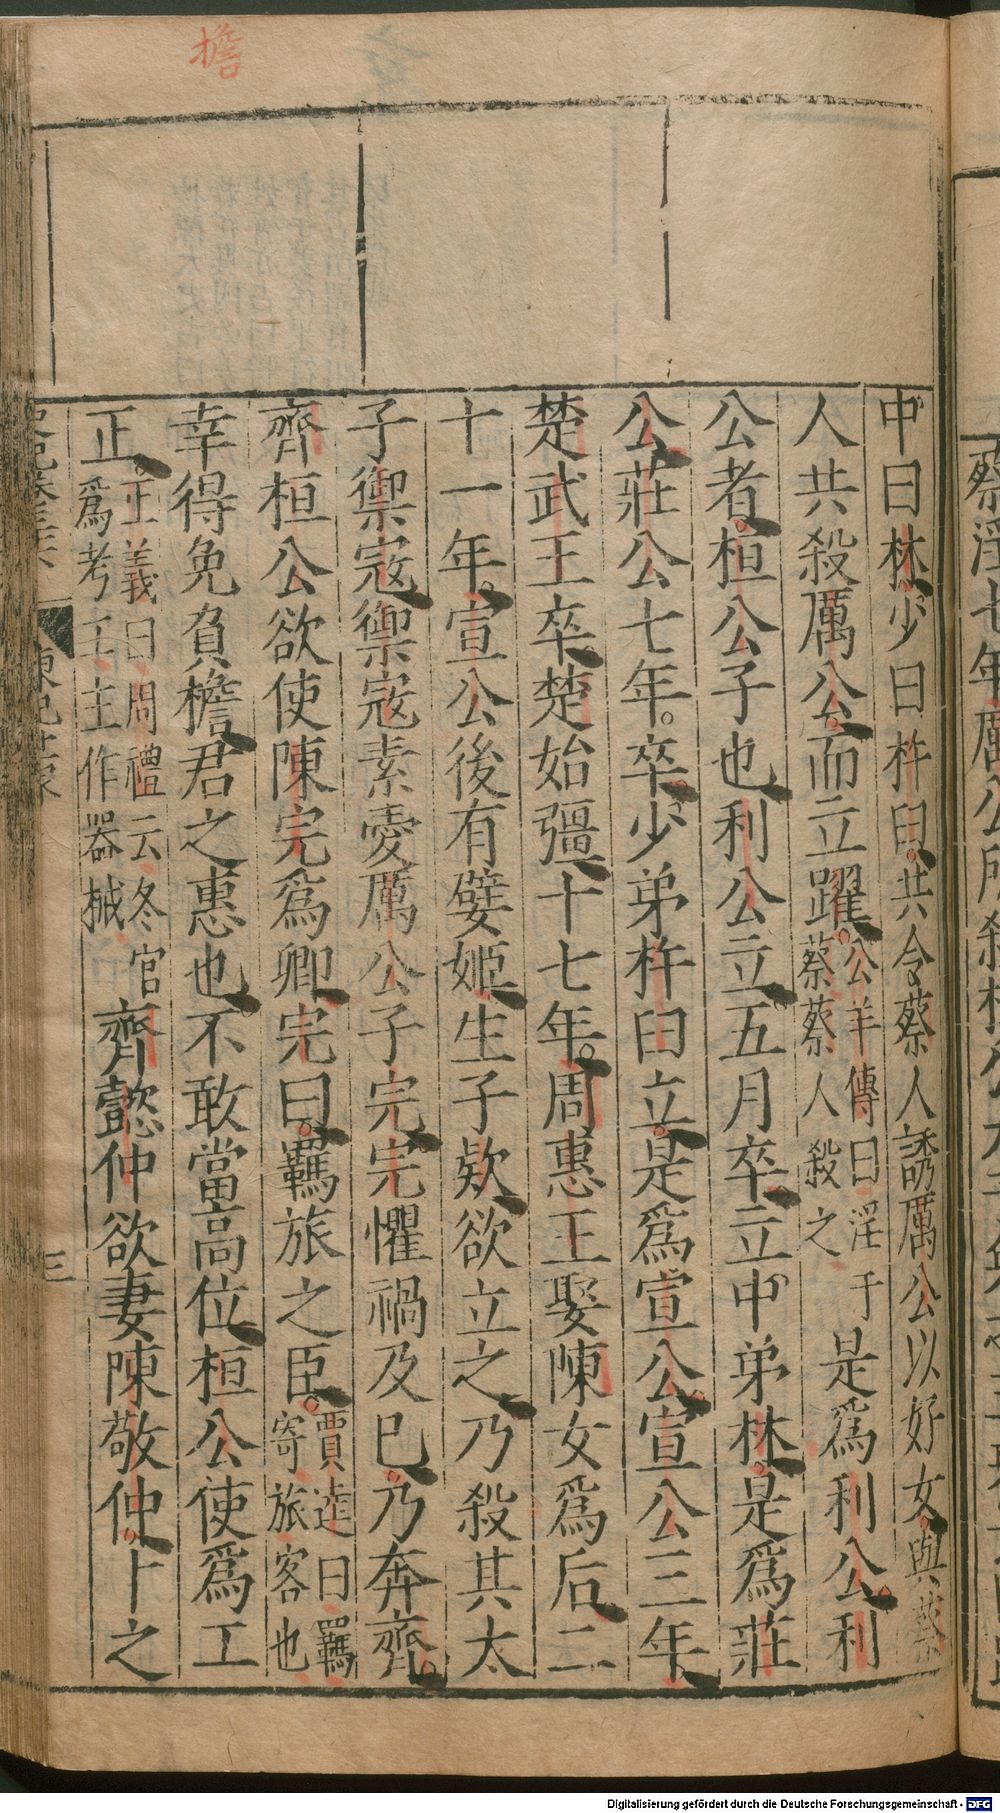 擔
中曰林少曰杵臼共令蔡人誘厲公以好女與蔡
人共殺厲公而立躍公羊傳曰淫于
蔡蔡人殺之是爲利公利
公者桓公子也利公立五月卒立中弟林是爲莊
公莊公七年卒少弟杵臼立是爲宣公宣公三年
楚武王卒楚始彊十七年周惠王娶陳女爲后二
十一年宣公後有嬖姬生子款欲立之乃殺其太
子禦寇禦寇素愛厲公子完完懼禍及已乃奔齊
齊桓公欲使陳完爲卿完曰羈旅之臣賈逵曰羈
寄旅客也
幸得免負檐君之惠也不敢當高位桓公使爲工
正正義曰周禮云冬官
爲考工主作器械齊懿仲欲妻陳敬仲卜之
三
Digitalisierung gefördert durch die Deutsche Forschungsgemeinschaft - DFG